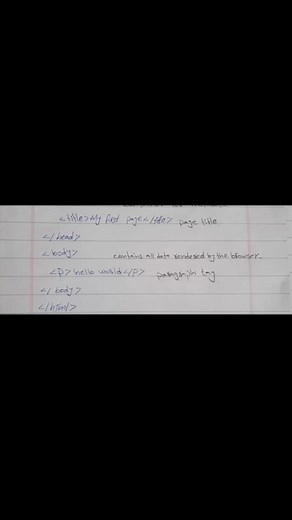 <title>My first page</title> page title
</head>
<body> contains all data rendered by the browser.
<p>hello world</p> paragraph tag
</body>
</html>